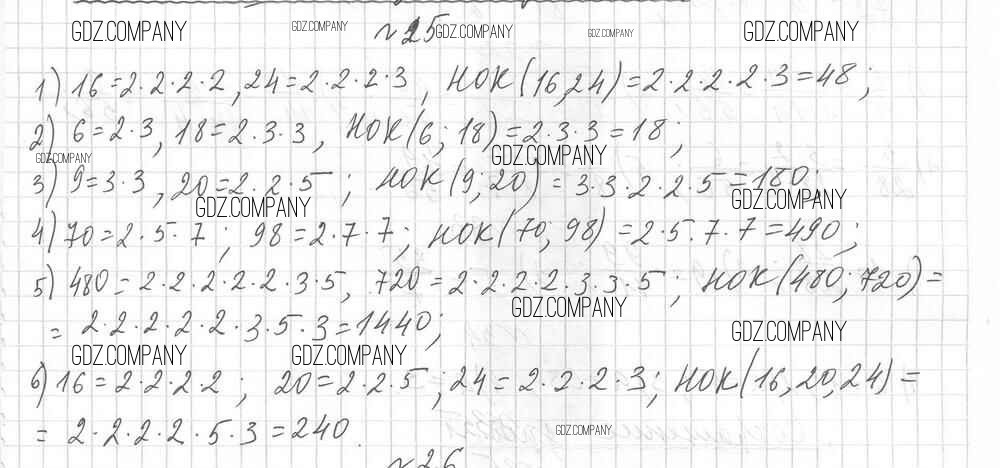 GDZ.COMPANY GDZ.COMPANY №25 GDZ.COMPANY GDZ.COMPANY GDZ.COMPANY
1) 16=2·2·2·2, 24=2·2·2·3, НОК(16,24)=2·2·2·2·3=48;
2) 6=2·3, 18=2·3·3, НОК(6; 18)=2·3·3=18;
GDZ.COMPANY GDZ.COMPANY
3) 9=3·3, 20=2·2·5; НОК(9; 20)=3·3·2·2·5=180;
GDZ.COMPANY GDZ.COMPANY
4) 70=2·5·7; 98=2·7·7; НОК(70; 98)=2·5·7·7=490;
5) 480=2·2·2·2·2·3·5, 720=2·2·2·2·3·3·5; НОК(480; 720)=
GDZ.COMPANY
=2·2·2·2·2·3·5·3=1440;
GDZ.COMPANY
GDZ.COMPANY GDZ.COMPANY
6) 16=2·2·2·2; 20=2·2·5; 24=2·2·2·3; НОК(16,20,24)=
=2·2·2·2·5·3=240.
GDZ.COMPANY
№26